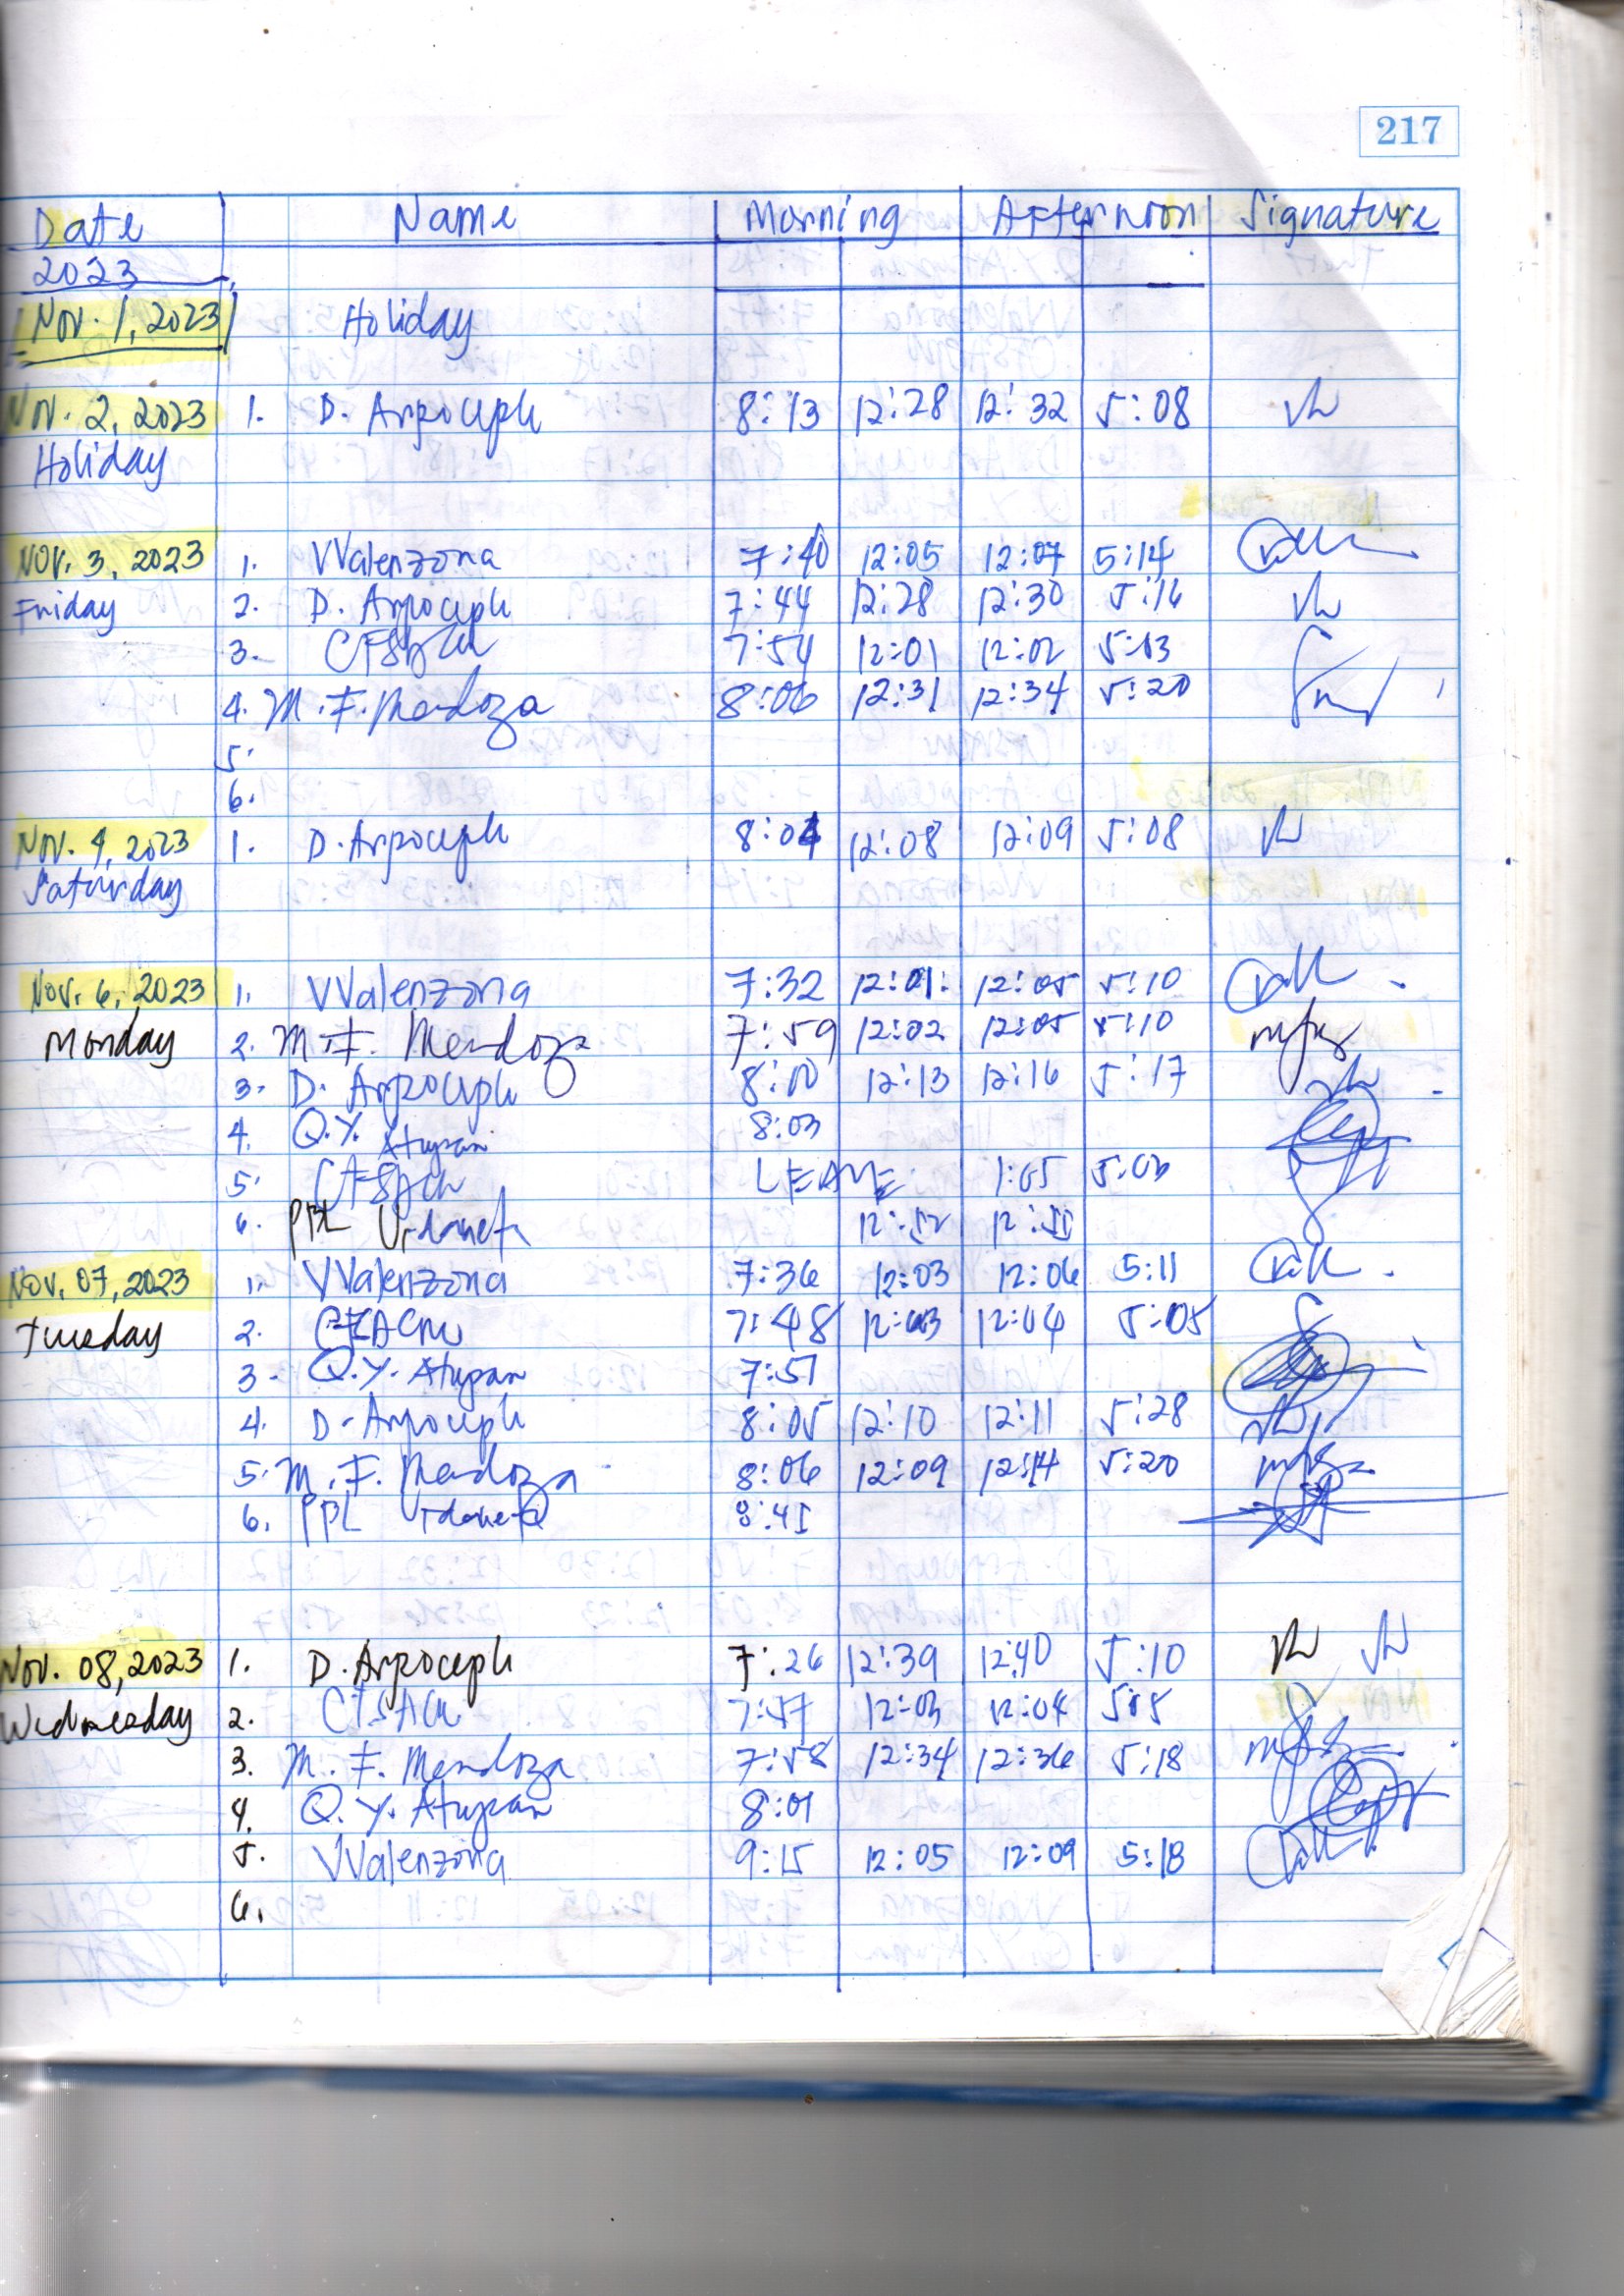 217
Date Name Morning Afternoon Signature
2023
Nov. 1, 2023 Holiday
Nov. 2, 2023 1. D. Arpoceph 8:13 12:28 12:32 5:08
Holiday
Nov. 3, 2023 1. VValenzona 7:40 12:05 12:07 5:14
Friday 2. D. Arpoceph 7:44 12:28 12:30 5:16
3. 7:54 12:01 12:02 5:13
4. M. F. Mendoza 8:06 12:31 12:34 5:20
5.
6.
Nov. 4, 2023 1. D. Arpoceph 8:04 12:08 12:09 5:08
Saturday
Nov. 6, 2023 1. VValenzona 7:32 12:01 12:05 5:10
Monday 2. M. F. Mendoza 7:59 12:02 12:05 5:10
3. D. Arpoceph 8:10 12:13 12:16 5:17
4. Q.Y. Atupan 8:03
5. LEAVE 1:05 5:03
6. PBL Urdaneta 12:52
Nov. 07, 2023 1. VValenzona 7:36 12:03 12:06 5:11
Tuesday 2. 7:48 12:03 12:04 5:05
3. Q.Y. Atupan 7:51
4. D. Arpoceph 8:05 12:10 12:11 5:28
5. M. F. Mendoza 8:06 12:09 12:14 5:20
6. PBL Urdaneta 8:45
Nov. 08, 2023 1. D. Arpoceph 7:26 12:39 12:40 5:10
Wednesday 2. 7:57 12:03 12:04
3. M. F. Mendoza 7:58 12:34 12:36 5:18
4. Q. Y. Atupan 8:01
5. VValenzona 9:15 12:05 12:09 5:18
6.